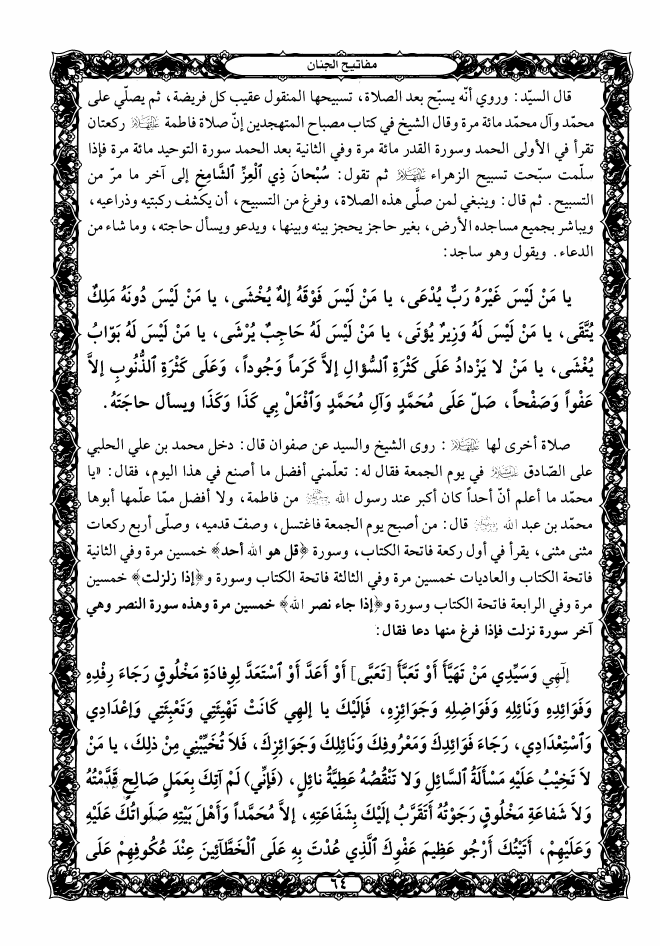 مفاتيح الجنان
قال السيّد: وروي أنّه يسبّح بعد الصلاة، تسبيحها المنقول عقيب كل فريضة، ثم يصلّي على
محمّد وآل محمّد مائة مرة وقال الشيخ في كتاب مصباح المتهجدين إنّ صلاة فاطمة عليها السلام ركعتان
تقرأ في الأولى الحمد وسورة القدر مائة مرة وفي الثانية بعد الحمد سورة التوحيد مائة مرة فإذا
سلّمت سبّحت تسبيح الزهراء عليها السلام ثم تقول: سُبْحانَ ذِي ٱلْعِزِّ ٱلشَّامِخِ إلى آخر ما مرّ من
التسبيح. ثم قال: وينبغي لمن صلَّى هذه الصلاة، وفرغ من التسبيح، أن يكشف ركبتيه وذراعيه،
ويباشر بجميع مساجده الأرض، بغير حاجز يحجز بينه وبينها، ويدعو ويسأل حاجته، وما شاء من
الدعاء. ويقول وهو ساجد:
يا مَنْ لَيْسَ غَيْرَهُ رَبٌّ يُدْعَى، يا مَنْ لَيْسَ فَوْقَهُ إلهٌ يُخْشَى، يا مَنْ لَيْسَ دُونَهُ مَلِكٌ
يُتَّقَى، يا مَنْ لَيْسَ لَهُ وَزِيرٌ يُؤتَى، يا مَنْ لَيْسَ لَهُ حَاجِبٌ يُرْشَى، يا مَنْ لَيْسَ لَهُ بَوَّابٌ
يُغْشَى، يا مَنْ لا يَزْدادُ عَلَى كَثْرَةِ ٱلسُّؤالِ إلاَّ كَرَماً وَجُوداً، وَعَلَى كَثْرَةِ ٱلذُّنُوبِ إلاَّ
عَفْواً وَصَفْحاً، صَلِّ عَلَى مُحَمَّدٍ وَآلِ مُحَمَّدٍ وَٱفْعَلْ بِي كَذَا وَكَذَا ويسأل حاجَتَهُ.
صلاة أخرى لها عليها السلام: روى الشيخ والسيد عن صفوان قال: دخل محمد بن علي الحلبي
على الصّادق عليه السلام في يوم الجمعة فقال له: تعلّمني أفضل ما أصنع في هذا اليوم، فقال: «يا
محمّد ما أعلم أنّ أحداً كان أكبر عند رسول الله من فاطمة، ولا أفضل ممّا علّمها أبوها
محمّد بن عبد الله قال: من أصبح يوم الجمعة فاغتسل، وصفّ قدميه، وصلّى أربع ركعات
مثنى مثنى، يقرأ في أول ركعة فاتحة الكتاب، وسورة ﴿قل هو الله أحد﴾ خمسين مرة وفي الثانية
فاتحة الكتاب والعاديات خمسين مرة وفي الثالثة فاتحة الكتاب وسورة و﴿إذا زلزلت﴾ خمسين
مرة وفي الرابعة فاتحة الكتاب وسورة و﴿إذا جاء نصر الله﴾ خمسين مرة وهذه سورة النصر وهي
آخر سورة نزلت فإذا فرغ منها دعا فقال:
إلَهِي وَسَيِّدِي مَنْ تَهَيَّأَ أَوْ تَعَبَّأَ [تَعَبَّى] أَوْ أَعَدَّ أَوْ ٱسْتَعَدَّ لِوِفادَةِ مَخْلُوقٍ رَجَاءَ رِفْدِهِ
وَفَوَائِدِهِ وَنَائِلِهِ وَفَوَاضِلِهِ وَجَوَائِزِهِ، فَإلَيْكَ يا إلهِي كَانَتْ تَهْيِئَتِي وَتَعْبِئَتِي وَإعْدَادِي
وَٱسْتِعْدَادِي، رَجَاءَ فَوَائِدِكَ وَمَعْرُوفِكَ وَنَائِلِكَ وَجَوَائِزِكَ، فَلاَ تُخَيِّبْنِي مِنْ ذلِكَ، يا مَنْ
لاَ تَخِيْبُ عَلَيْهِ مَسْأَلَةُ ٱلسَّائِلِ وَلا تَنْقُصُهُ عَطِيَّةُ نائِلٍ، (فَإنِّي) لَمْ آتِكَ بِعَمَلٍ صَالِحٍ قَدَّمْتُهُ
وَلاَ شَفاعَةِ مَخْلُوقٍ رَجَوْتُهُ أَتَقَرَّبُ إلَيْكَ بِشَفَاعَتِهِ، إلاَّ مُحَمَّداً وَأَهْلَ بَيْتِهِ صَلَواتُكَ عَلَيْهِ
وَعَلَيْهِمْ، أَتَيْتُكَ أَرْجُو عَظِيمَ عَفْوِكَ ٱلَّذِي عُدْتَ بِهِ عَلَى ٱلْخَطَّائِينَ عِنْدَ عُكُوفِهِمْ عَلَى
٦٤